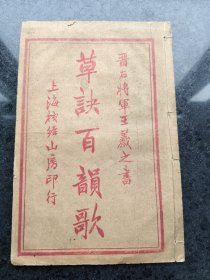 晋右將軍王羲之書
草訣百韻歌
上海掃葉山房印行